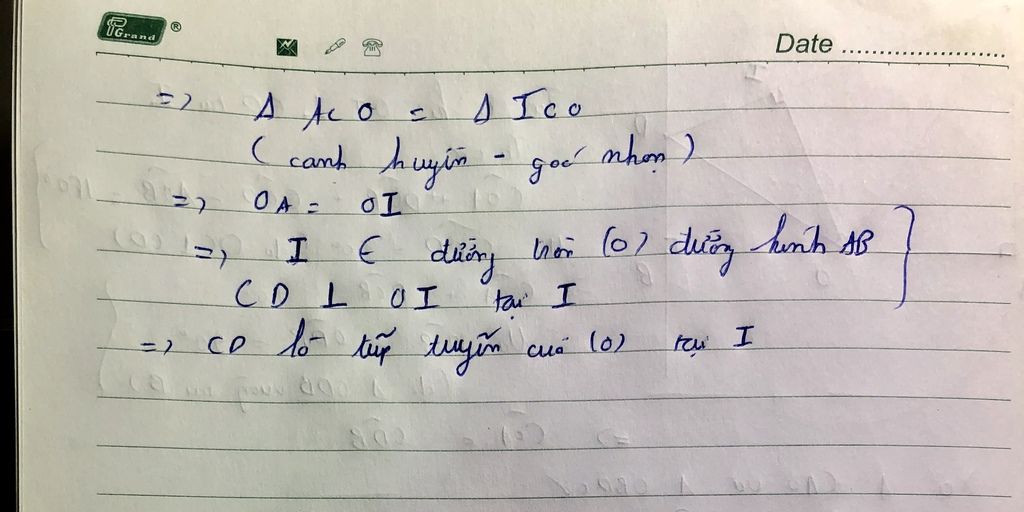 PGrand ®
Date ........................
=> Δ ACO = Δ ICO
(canh huyền - góc nhọn)
=> OA = OI
=> I ∈ đường tròn (O) đường kính AB
CD ⊥ OI tại I
=> CD là tiếp tuyến của (O) tại I